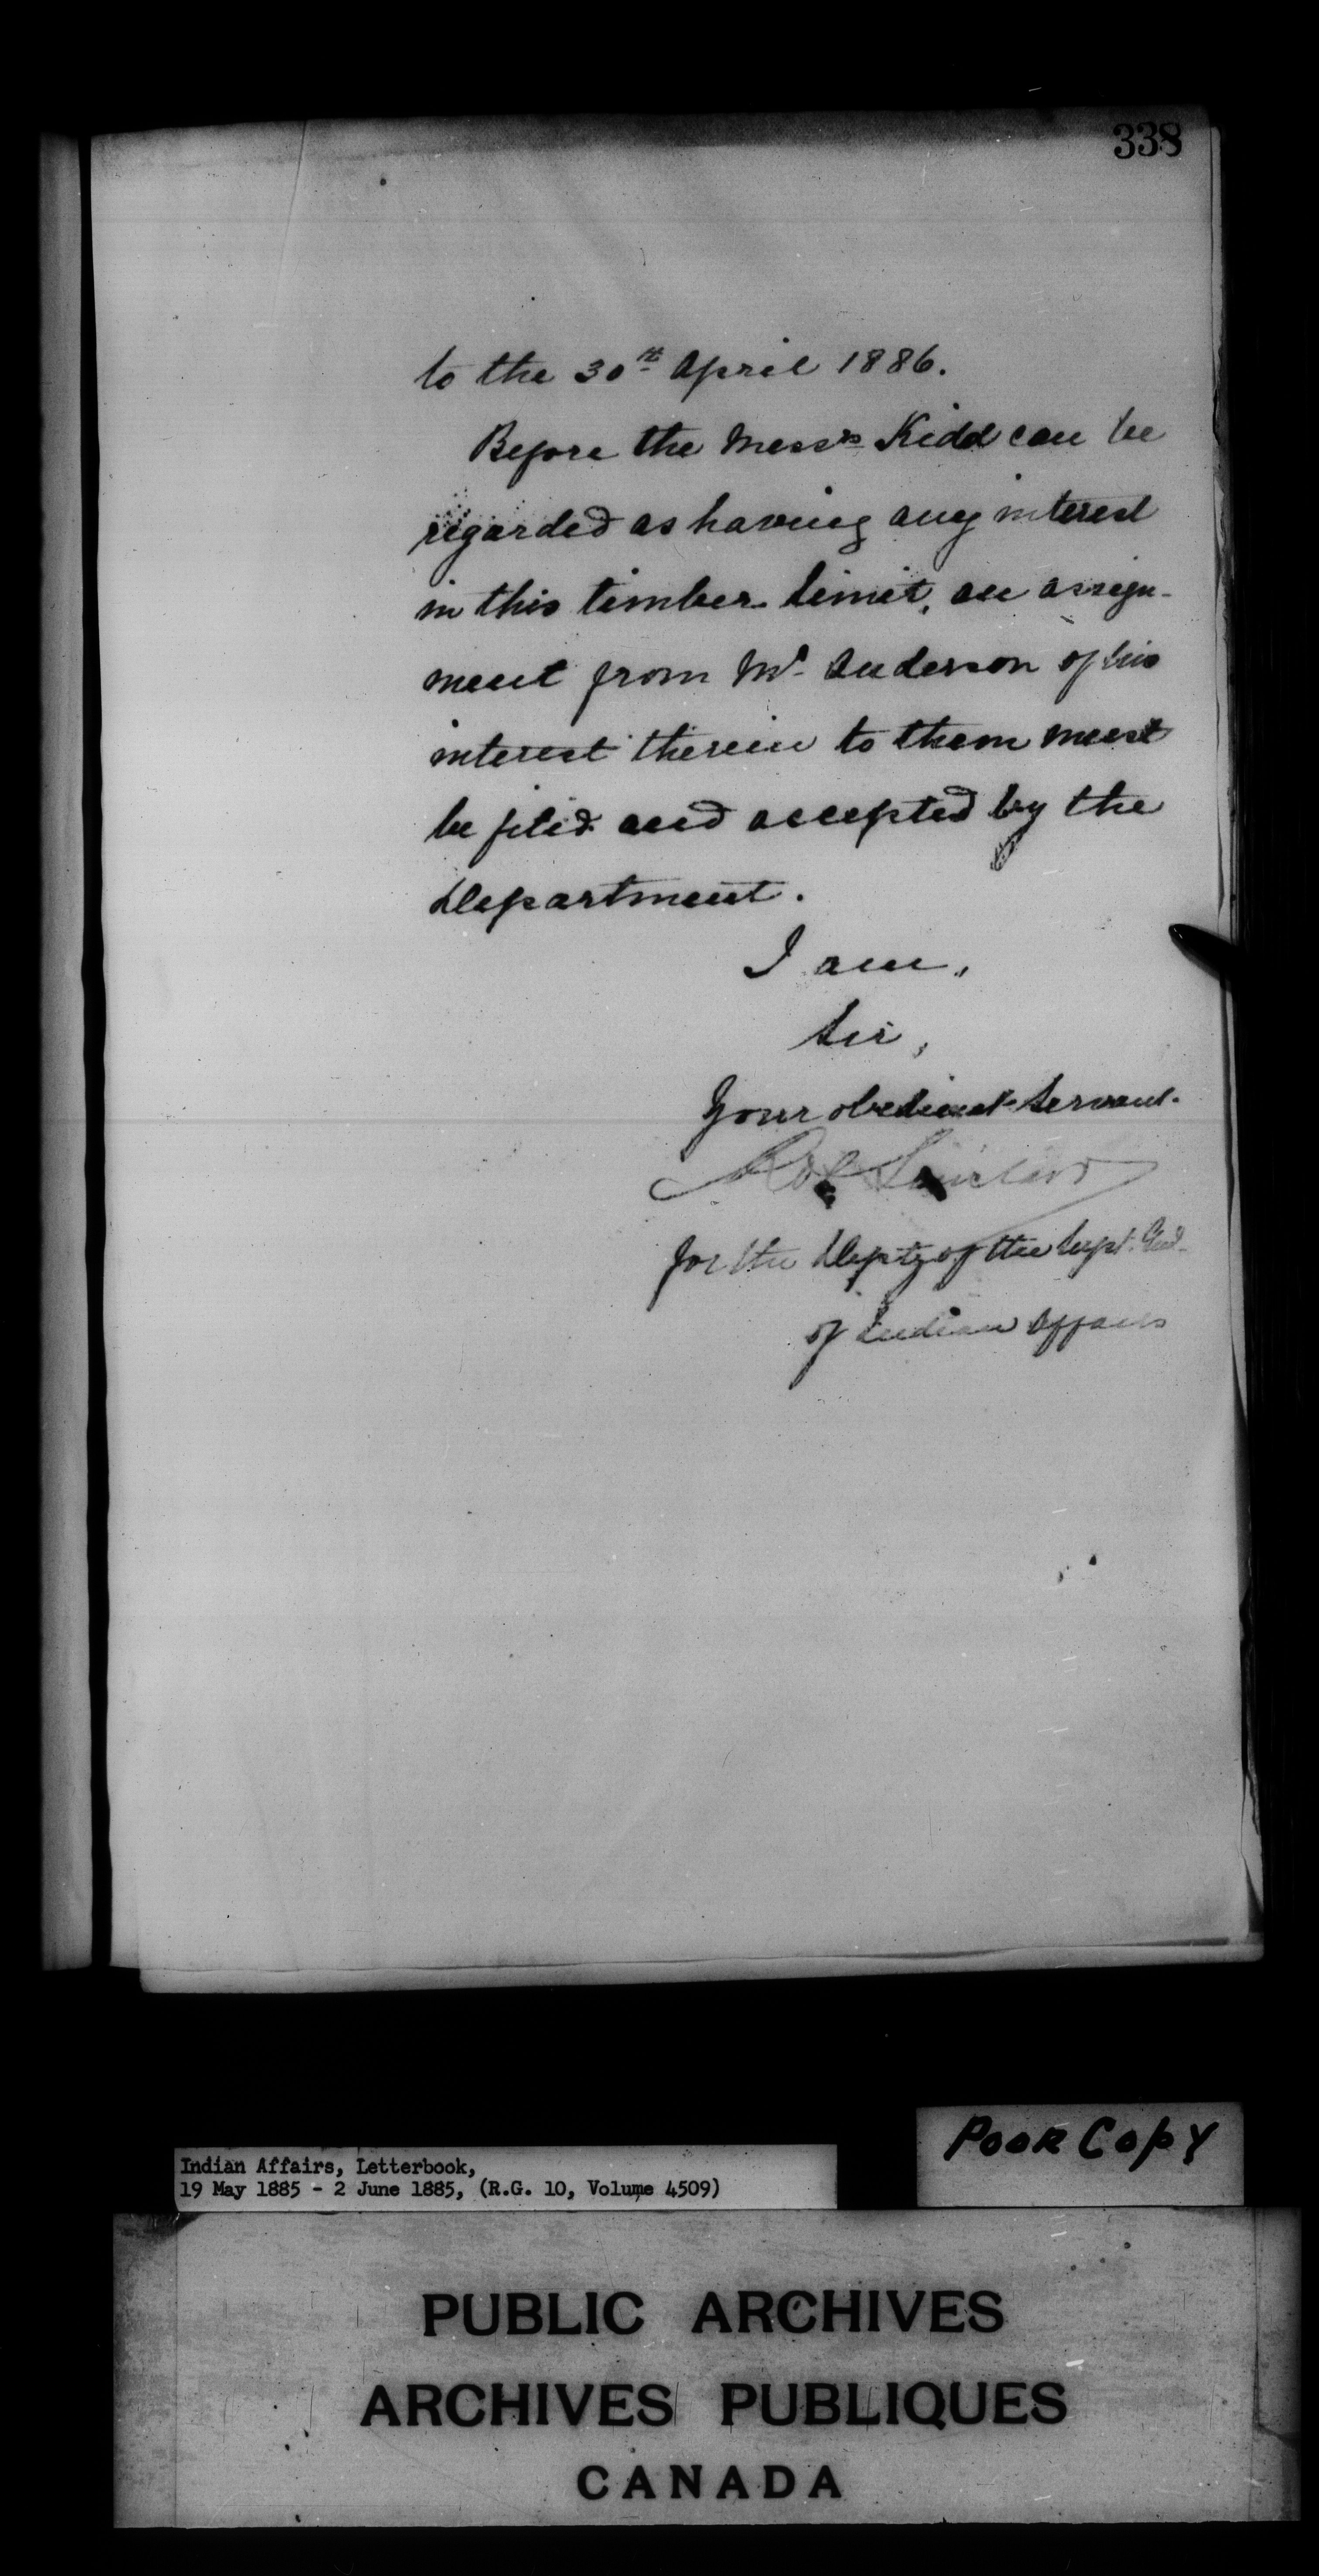 338
to the 30th April 1886.
Before the Messrs Kidd can be
regarded as having any interest
in this timber limit, an assign-
ment from Mr Anderson of his
interest therein to them must
be filed and accepted by the
Department.
I am,
Sir,
Your obedient Servant.
Sinclair
for the Depty of the Supt. Genl.
of Indian Affairs
Poor Copy
Indian Affairs, Letterbook,
19 May 1885 - 2 June 1885, (R.G. 10, Volume 4509)
PUBLIC ARCHIVES
ARCHIVES PUBLIQUES
CANADA